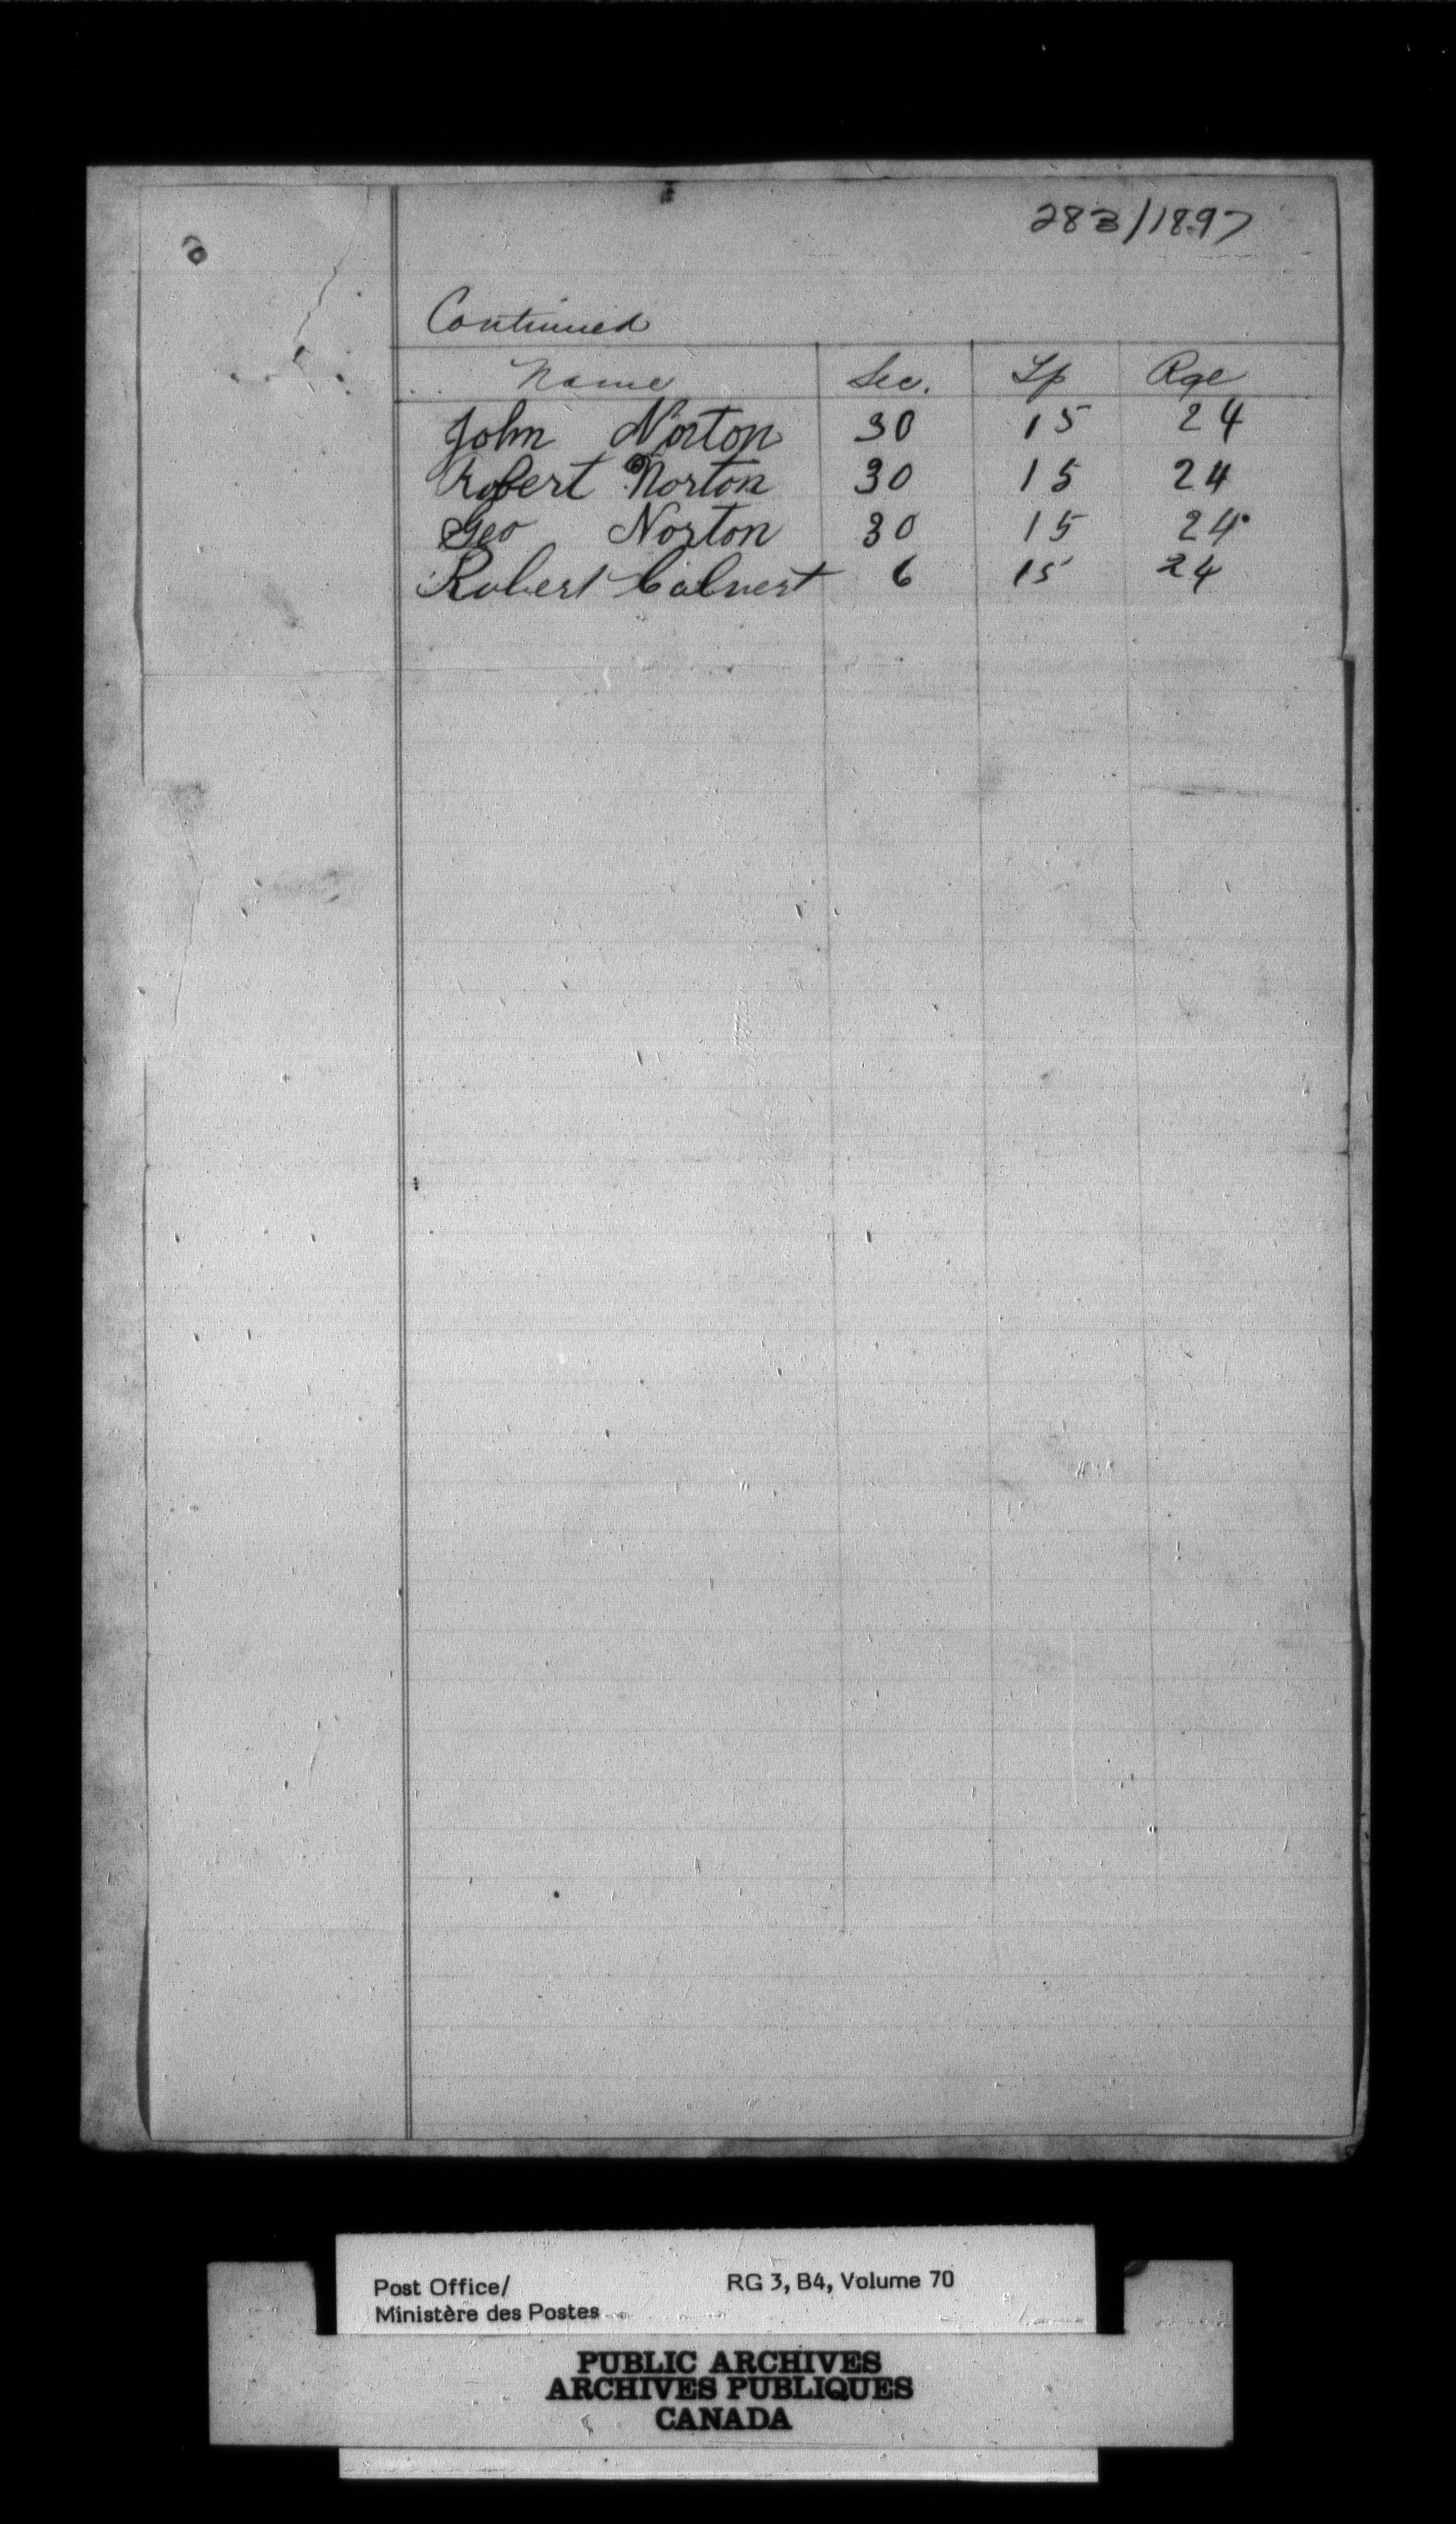 283/1897
Continued
Name Sec. Tp Rge
John Norton 30 15 24
Robert Norton 30 15 24
Geo Norton 30 15 24
Robert Calvert 6 15 24
Post Office/ RG 3, B4, Volume 70
Ministère des Postes
PUBLIC ARCHIVES
ARCHIVES PUBLIQUES
CANADA